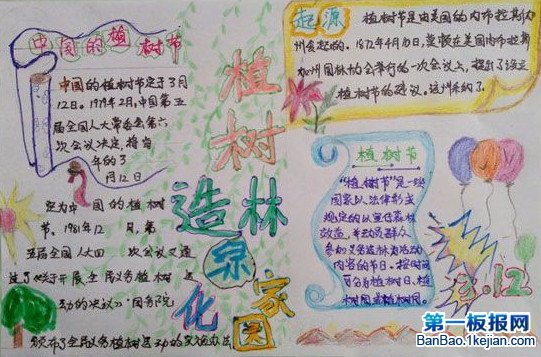 中国的植树节
中国的植树节定于3月
12日。1979年2月,中国第五
届全国人大常委会第六
次会议决定,将每
年的3
月12日
定为中国的植树
节。1981年12月,第
五届全国人大四次会议又通
过了《关于开展全民义务植树运
动的决议》。国务院
颁布了全民义务植树运动的实施办法
植树
造林
绿化
家园
起源
植树节是由美国的内布拉斯加
州发起的。1872年4月10日,莫顿在美国内布拉斯
加州园林协会举行的一次会议上,提出了设立
植树节的建议。
植树节
“植树节”是一些
国家以法律形式
规定的以宣传森林
效益,并动员群众
参加义务造林为活动
内容的节日。按时间
可分为植树日、植
树周或植树月。
3.12
第一板报网
BanBao.1kejian.com